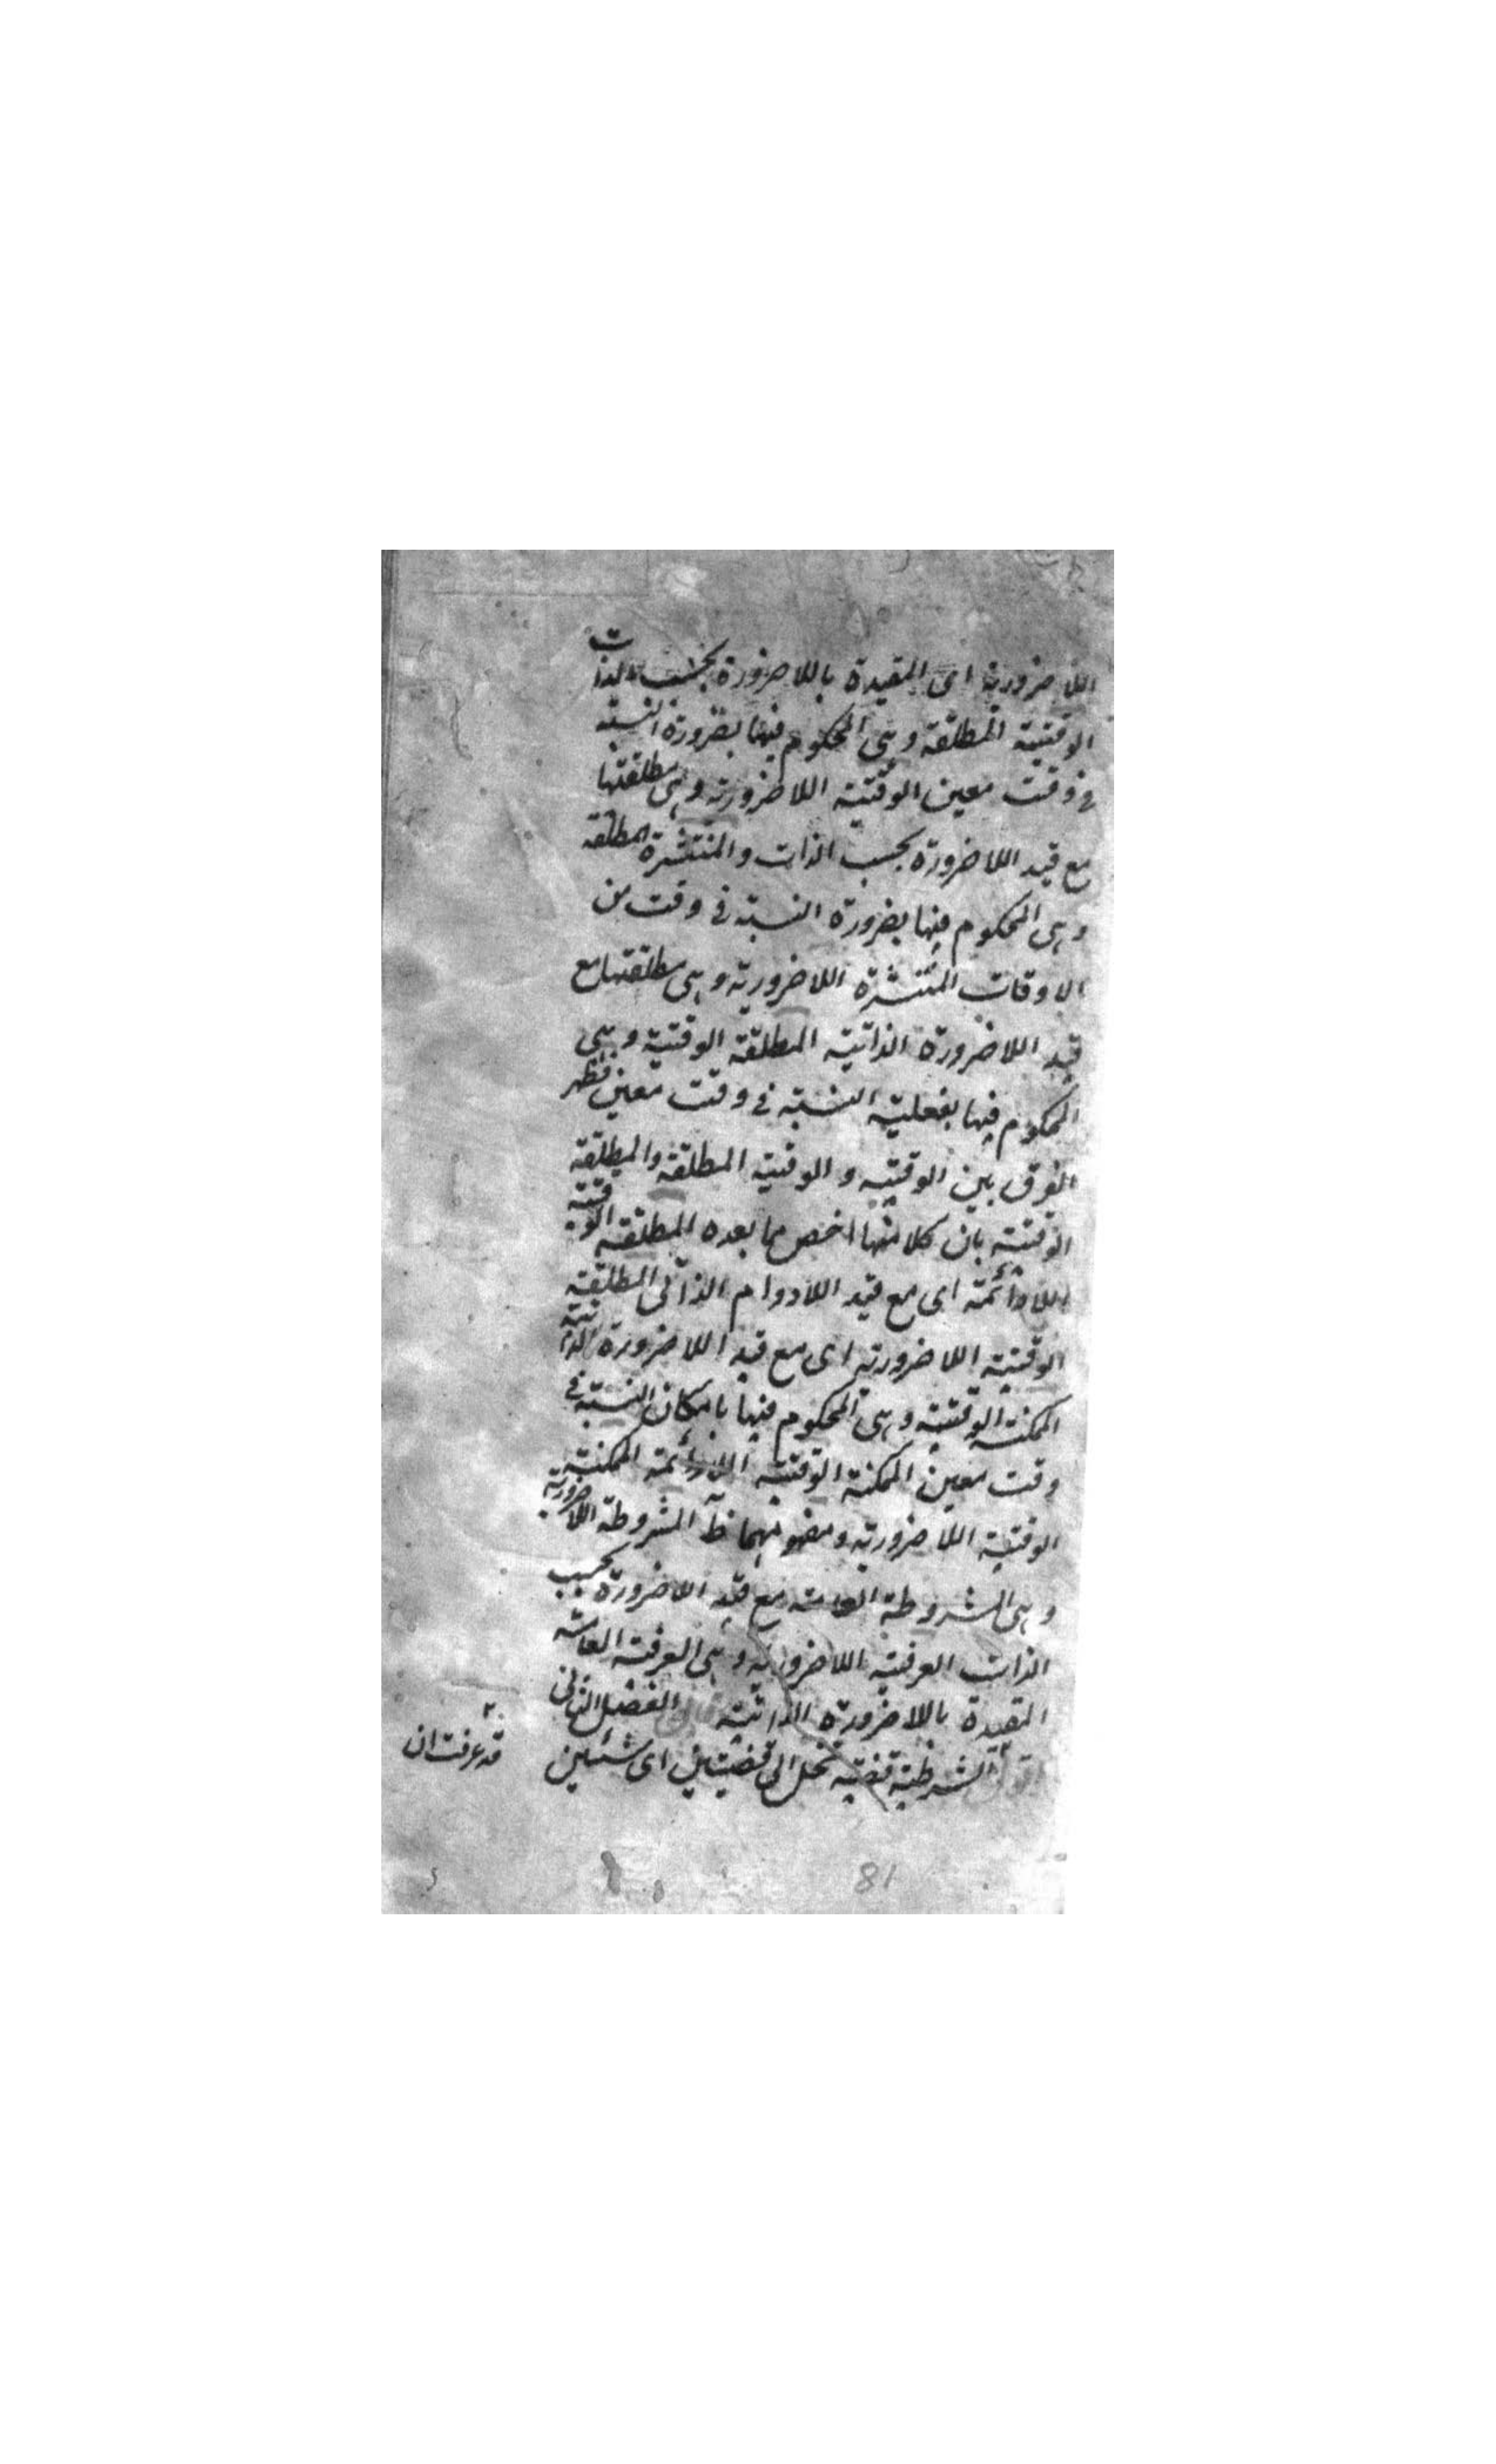 اللا ضرورية اى المقيدة باللا ضرورة بحسب الذات
الوقتية المطلقة وهى المحكوم فيها بضرورة النسبة
فى وقت معين الوقتية اللا ضرورية وهى مطلقتها
مع قيد اللا ضرورة بحسب الذات والمنتشرة المطلقة
وهى المحكوم فيها بضرورة النسبة فى وقت من
الاوقات المنتشرة اللا ضرورية وهى مطلقتها مع
قيد اللا ضرورة الذاتية المطلقة الوقتية وهى
المحكوم فيها بفعلية النسبة فى وقت معين فظهر
الفرق بين الوقتية والوقتية المطلقة والمطلقة
الوقتية بان كلا منها اخص مما بعده المطلقة الوقتية
اللا دائمة اى مع قيد اللا دوام الذاتى المطلقة
الوقتية اللا ضرورية اى مع قيد اللا ضرورة الذاتية
الممكنة الوقتية وهى المحكوم فيها بامكان النسبة فى
وقت معين الممكنة الوقتية اللا دائمة الممكنة
الوقتية اللا ضرورية ومفهومهما ظ المشروطة اللا ضرورية
وهى المشروطة العامة مع قيد اللا ضرورة بحسب
الذات العرفية اللا ضرورية وهى العرفية العامة
المقيدة باللا ضرورة الذاتية قال الفصل الثانى
اقول الشرطية قضية تنحل الى قضيتين اى شيئين
قد عرفت ان
81